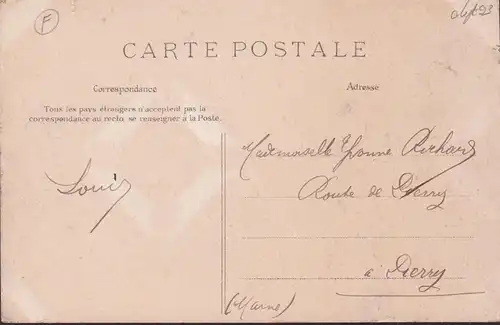 F
CARTE POSTALE
Correspondance
Adresse
Tous les pays étrangers n'acceptent pas la
correspondance au recto, se renseigner à la Poste.
Mademoiselle Yvonne Richard
Route de Pierry
à Pierry
(Marne)
Louis